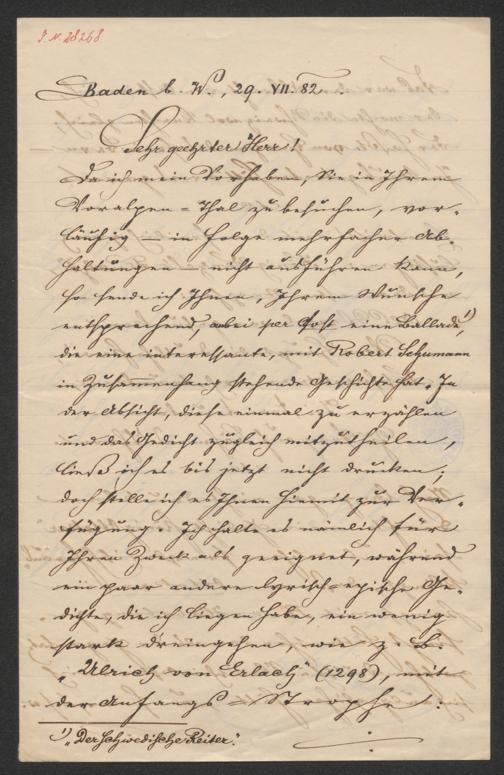 I. N. 28268
Baden b. W., 29. VII. 82.
Sehr geehrter Herr!
Da ich mein Vorhaben, Sie in Ihrem
Voralpen-Thal zu besuchen, vor-
läufig – in Folge mehrfacher Ab-
haltungen – nicht ausführen kann,
so sende ich Ihnen, Ihrem Wunsche
entsprechend, anbei per Post eine Ballade,¹)
die eine interessante, mit Robert Schumann
in Zusammenhang stehende Geschichte hat. In
der Absicht, diese einmal zu erzählen
und das Gedicht zugleich mitzutheilen,
ließ ich es bis jetzt nicht drucken;
doch stelle ich es Ihnen hiemit zur Ver-
fügung. Ich halte es nämlich für
Ihren Zweck als geeignet, während
ein paar andere lyrisch-epische Ge-
dichte, die ich liegen habe, ein wenig
stark dreingehen, wie z. B.
„Ulrich von Erlach" (1298), mit
der Anfangs-Strophe:
¹) „Der schwedische Reiter".